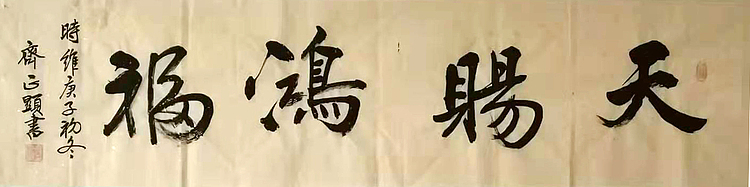 天賜鴻福
時維庚子初冬
齊正顯書